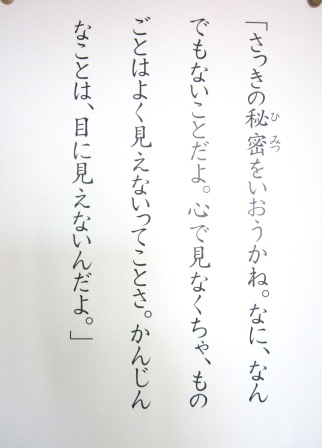 「さっきの秘密をいおうかね。なに、なん
でもないことだよ。心で見なくちゃ、もの
ごとはよく見えないってことさ。かんじん
なことは、目に見えないんだよ。」